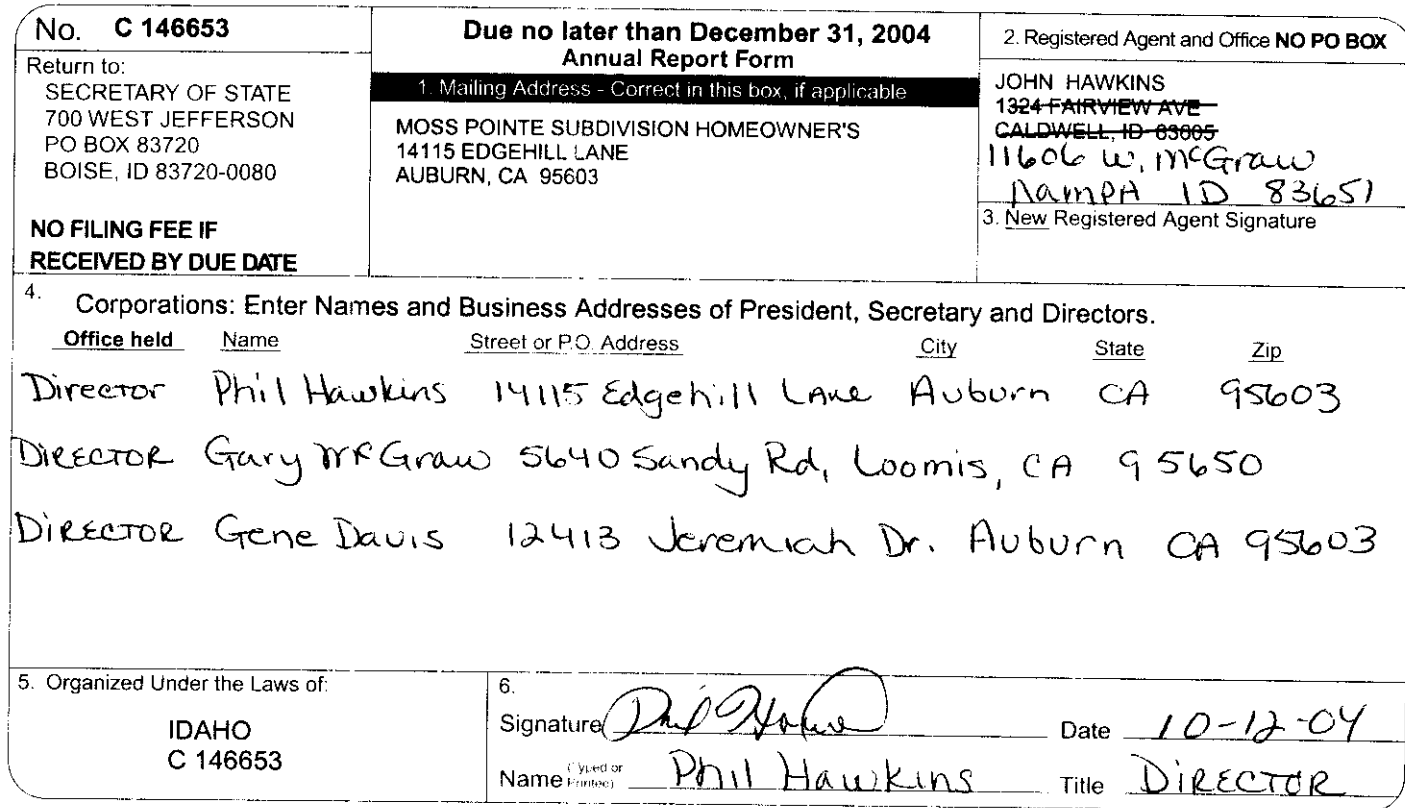 No. C 146653
Return to:
SECRETARY OF STATE
700 WEST JEFFERSON
PO BOX 83720
BOISE, ID 83720-0080
NO FILING FEE IF
RECEIVED BY DUE DATE
Due no later than December 31, 2004
Annual Report Form
1. Mailing Address - Correct in this box, if applicable
MOSS POINTE SUBDIVISION HOMEOWNER'S
14115 EDGEHILL LANE
AUBURN, CA 95603
2. Registered Agent and Office NO PO BOX
JOHN HAWKINS
1324 FAIRVIEW AVE
CALDWELL, ID 83605
11606 W. McGraw
NAMPA ID 83651
3. New Registered Agent Signature
4. Corporations: Enter Names and Business Addresses of President, Secretary and Directors.
Office held Name Street or P.O. Address City State Zip
Director Phil Hawkins 14115 Edgehill Lane Auburn CA 95603
DIRECTOR Gary McGraw 5640 Sandy Rd, Loomis, CA 95650
DIRECTOR Gene Davis 12413 Jeremiah Dr. Auburn CA 95603
5. Organized Under the Laws of:
IDAHO
C 146653
6.
Signature Phil Hawkins Date 10-12-04
Name (Typed or Printed) Phil Hawkins Title DIRECTOR